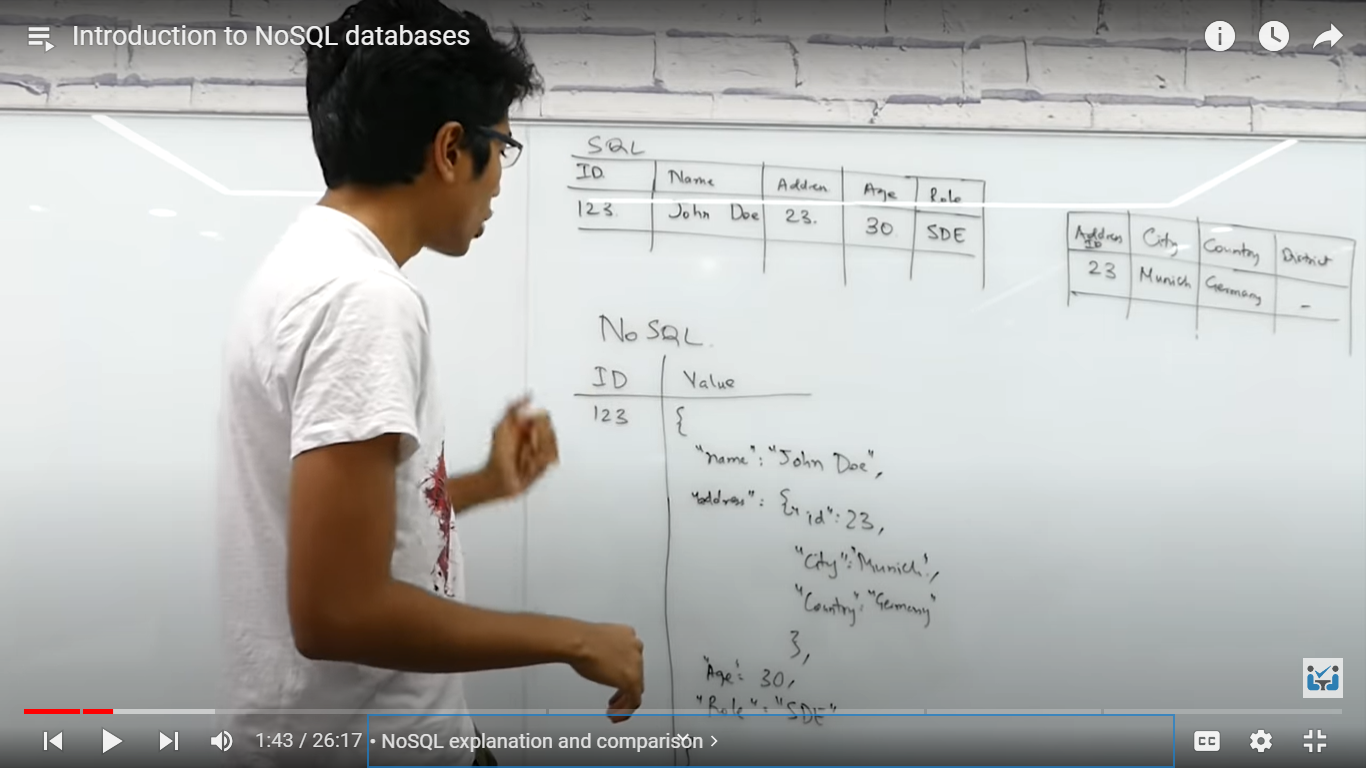 Introduction to NoSQL databases
SQL
ID Name Address Age Role
123. John Doe 23. 30 SDE
Address ID City Country District
23 Munich Germany -
NoSQL.
ID Value
123 {
"name": "John Doe",
"address": {"id": 23,
"City": "Munich",
"Country": "Germany"
},
"Age": 30,
"Role": "SDE"
}
1:43 / 26:17 • NoSQL explanation and comparison >
CC